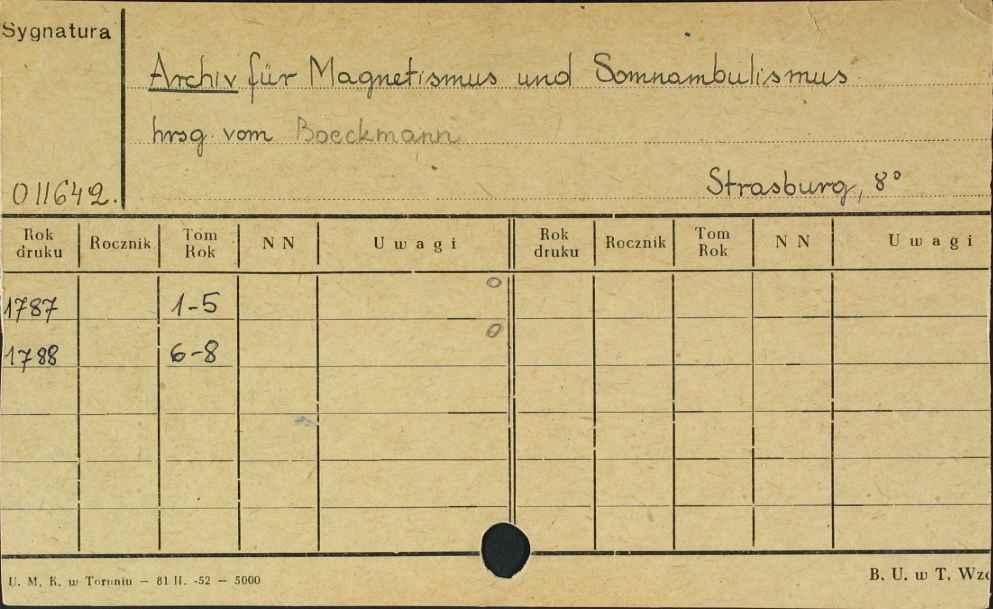 Sygnatura
Archiv für Magnetismus und Somnambulismus
hrsg. vom Boeckmann
011642.
Strasburg, 8°
Rok druku Rocznik Tom Rok N N Uwagi Rok druku Rocznik Tom Rok N N Uwagi
1787 1-5 0
1788 6-8 0
U. M. K. w Toruniu — 81 II. -52 — 5000
B. U. w T. Wzo